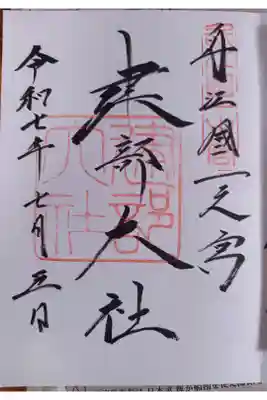 近江國一之宮
建部大社
令和七年七月五日
建部
大社